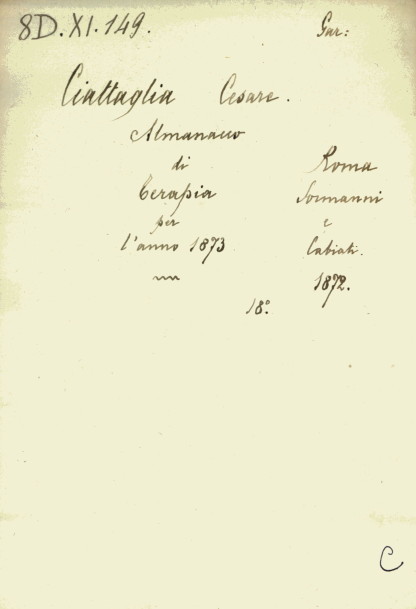 8D.XI.149.
Gar:
Ciattaglia Cesare.
Almanacco
di
Terapia
per
l'anno 1873
Roma
Sonmanni
e
Cabiati.
1872.
18°.
C